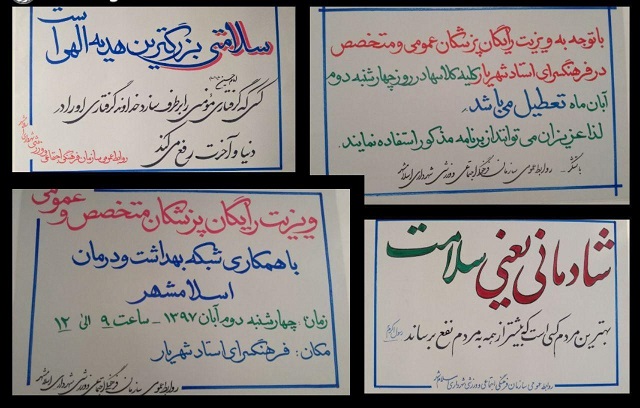 سلامتی بزرگترین هدیه الهی است
امام حسین
کسی که گرفتاری مؤمنی را برطرف سازد خداوند گرفتاری او را در
دنیا و آخرت رفع می کند
روابط عمومی سازمان فرهنگی اجتماعی و ورزشی شهرداری اسلامشهر
با توجه به ویزیت رایگان پزشکان عمومی و متخصص
در فرهنگسرای استاد شهریار کلیه کلاسها در روز چهارشنبه دوم
آبان ماه تعطیل می باشد.
لذا عزیزان می توانند از برنامه مذکور استفاده نمایند.
با تشکر - روابط عمومی سازمان فرهنگی اجتماعی و ورزشی شهرداری اسلامشهر
ویزیت رایگان پزشکان متخصص و عمومی
با همکاری شبکه بهداشت و درمان
اسلامشهر
زمان: چهارشنبه دوم آبان ۱۳۹۷ - ساعت ۹ الی ۱۲
مکان: فرهنگسرای استاد شهریار
روابط عمومی سازمان فرهنگی اجتماعی و ورزشی شهرداری اسلامشهر
شادمانی یعنی سلامت
رسول اکرم
بهترین مردم کسی است که بیشتر از همه به مردم نفع برساند
روابط عمومی سازمان فرهنگی اجتماعی و ورزشی شهرداری اسلامشهر